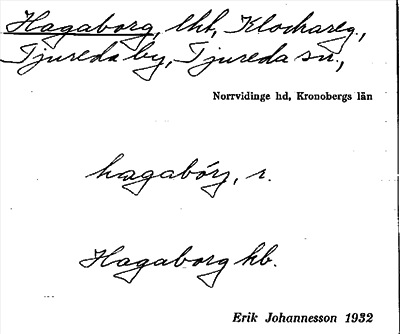 Hagaborg, lht, Klockareg.,
Tjureda by, Tjureda sn.,
Norrvidinge hd, Kronobergs län
hagabórj, r.
Hagaborg hb.
Erik Johannesson 1932